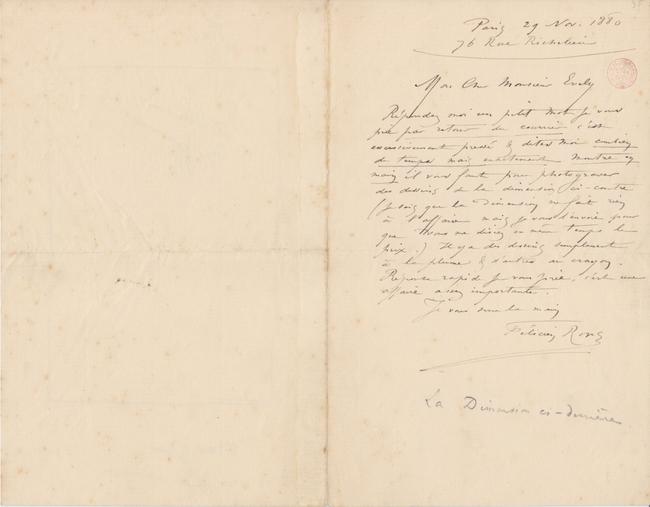 Paris 29 Nov. 1880
76 Rue Richelieu
Mon Cher Monsieur Evely
Répondez moi un petit mot je vous
prie par retour du courrier c'est
excessivement pressé & dites moi combien
de temps mais exactement montre en
main il vous faut pour photograver
des dessins de la dimension ci-contre
(Je sais que la Dimension ne fait rien
à l'affaire mais je vous l'envoie pour
que vous me disiez en même temps le
prix.) Il y a des dessins simplement
à la plume & d'autres au crayon.
Réponse rapide je vous prie, c'est une
affaire assez importante.
Je vous serre la main
Félicien Rops
La Dimension ci-derrière